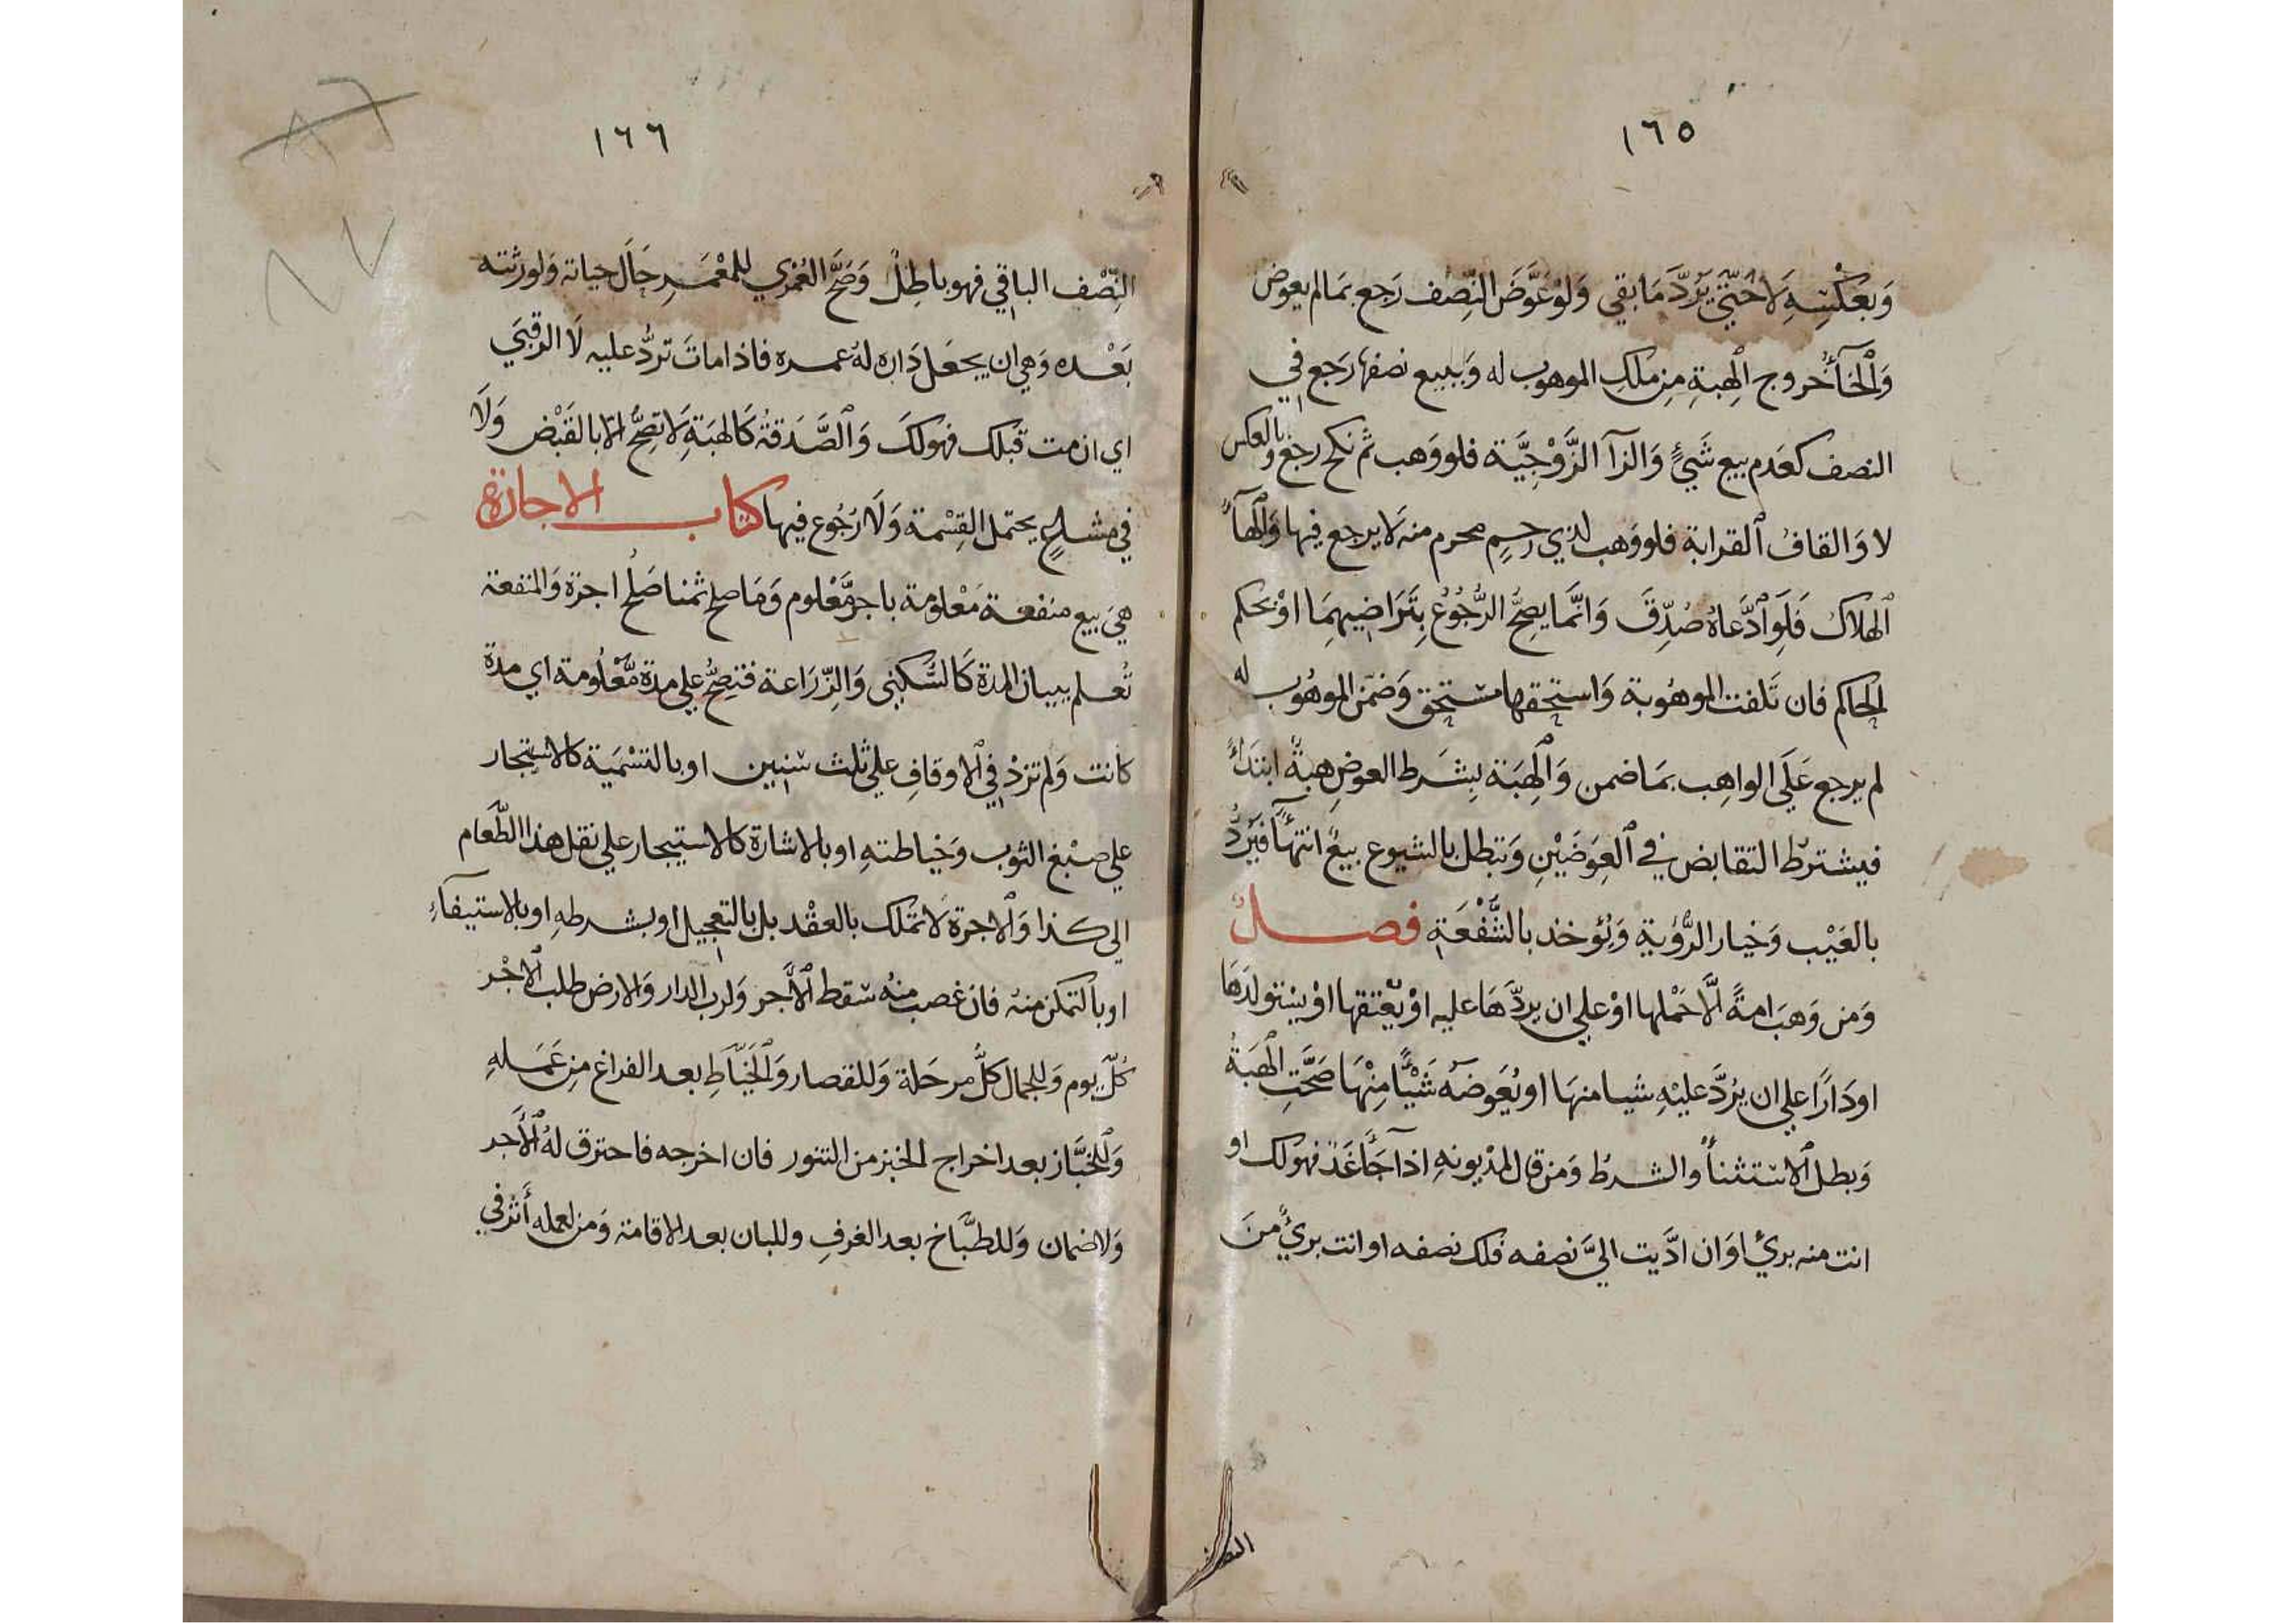 ١٦٥
وَبعَكْسِهِ لَا حَتّيَ يَرُدَّ مَا بقي وَلوْ عَوَّضَ النِّصْف رَجع بمَا لم يعوض
وَالْخَآءُ خروج الْهِبةِ مِن ملكِ الموهوب له وَببيع نصفها رَجع في
النصف كعَدم بيع شَيْءٍ وَالزآ الزَّوْجيَّة فلو وَهب ثم نكح رجع وبالعكس
لا وَالقافُ القرابة فلو وَهب لذي رحِمٍ محرم منه لا يرجع فيها وَالهآءُ
الهلاك فَلَو ادَّعاهُ صُدِّقَ وَانَّمَا يصِحُّ الرُّجُوُعُ بِتَرَاضيهِمَا اوْ بحكم
الحاكم فان تَلفت الموهُوبة وَاستحقها مستحق وَضمّن الموهُوب له
لم يرجع عَلَي الواهِب بمَا ضمن وَالْهِبَة بِشَرط العوضِ هبةً ابتدَاءً
فيشترطُ التقابض في العِوَضَيْنِ وَتبطل بالشيوع بيعٌ انتهآءً فيُرَدُّ
بالعَيْب وَخيار الرُّؤية وَيُؤخذ بالشُّفْعَة فصـــلٌ
وَمن وَهبَ امةً الَّا حَمْلها اوْ علي ان يردَّهَا عليه اوْ يُعْتقها اوْ يستولدهَا
او دَارًا علي ان يرُدَّ عليْهِ شيا منهَا او يُعَوضهُ شَيْئًا مِنْهَا صَحَّتِ الْهِبَةُ
وَبطل الاستثنأُ والشرطُ وَمن قال لمدْيونهِ اذا جَآءَ غَدٌ فهو لك او
انت منه بريٌ اوَان ادَّيت اليَّ نصفه فلك نصفه او انت بريٌ منَ
النصف
١٦٦
النِّصْف الباقي فهو باطِلٌ وَصَحَّ العُمْرَي للمعْمَر حَالَ حياته وَلورثته
بَعْده وَهي ان يجعَل دَاره لهُ عمره فاذا ماتَ تردُّ عليه لَا الرقبَي
اي ان مت قبْلك فهو لكَ وَالصَّدَقةُ كَالهبَةِ لَا تصِحُّ الّا بالقَبْض وَلَا
في مشــاعٍ يحتمل القِسْمة وَلَا رُجُوع فيها كتاب الاجارة
هيَ بيع منفعة مَعْلومة باجر مَّعْلوم وَمَا صلح ثمنا صَلُح اجرَة وَالمنفعة
تُعلم ببيان المدة كَالسُّكنَي وَالزِّرَاعة فتصِحُّ علي مدة مَّعْلُومة اي مدة
كانت وَلم تزدْ في الاوقافِ علي ثلث سنِين او بالتسْمَية كالاستيجار
علي صبْغ الثوب وَخياطتهِ او بالاشارة كالاستيجار علي نقل هذا الطّعام
الي كذا وَالاجرة لَا تملك بالعقْد بل بالتعجيل او بشرطهِ او بالاستيفآءِ
او بالتمكن منهُ فان غصب منهُ سَقط الاَّجر وَلرب الدار وَالارض طلب الاجْر
كُلَّ يوم وَللجمال كلَّ مرحَلة وَللقصار وَالخَيَّاطِ بعد الفراغ مِن عَمَـلهِ
وَللْخبَّاز بعد اخراج الخبز من التنور فان اخرجه فاحترق لهُ الْأجر
وَلا ضمان وَللطبَّاخ بعد الغرفِ وللبان بعد الاقامة وَمن لعمله أثر في